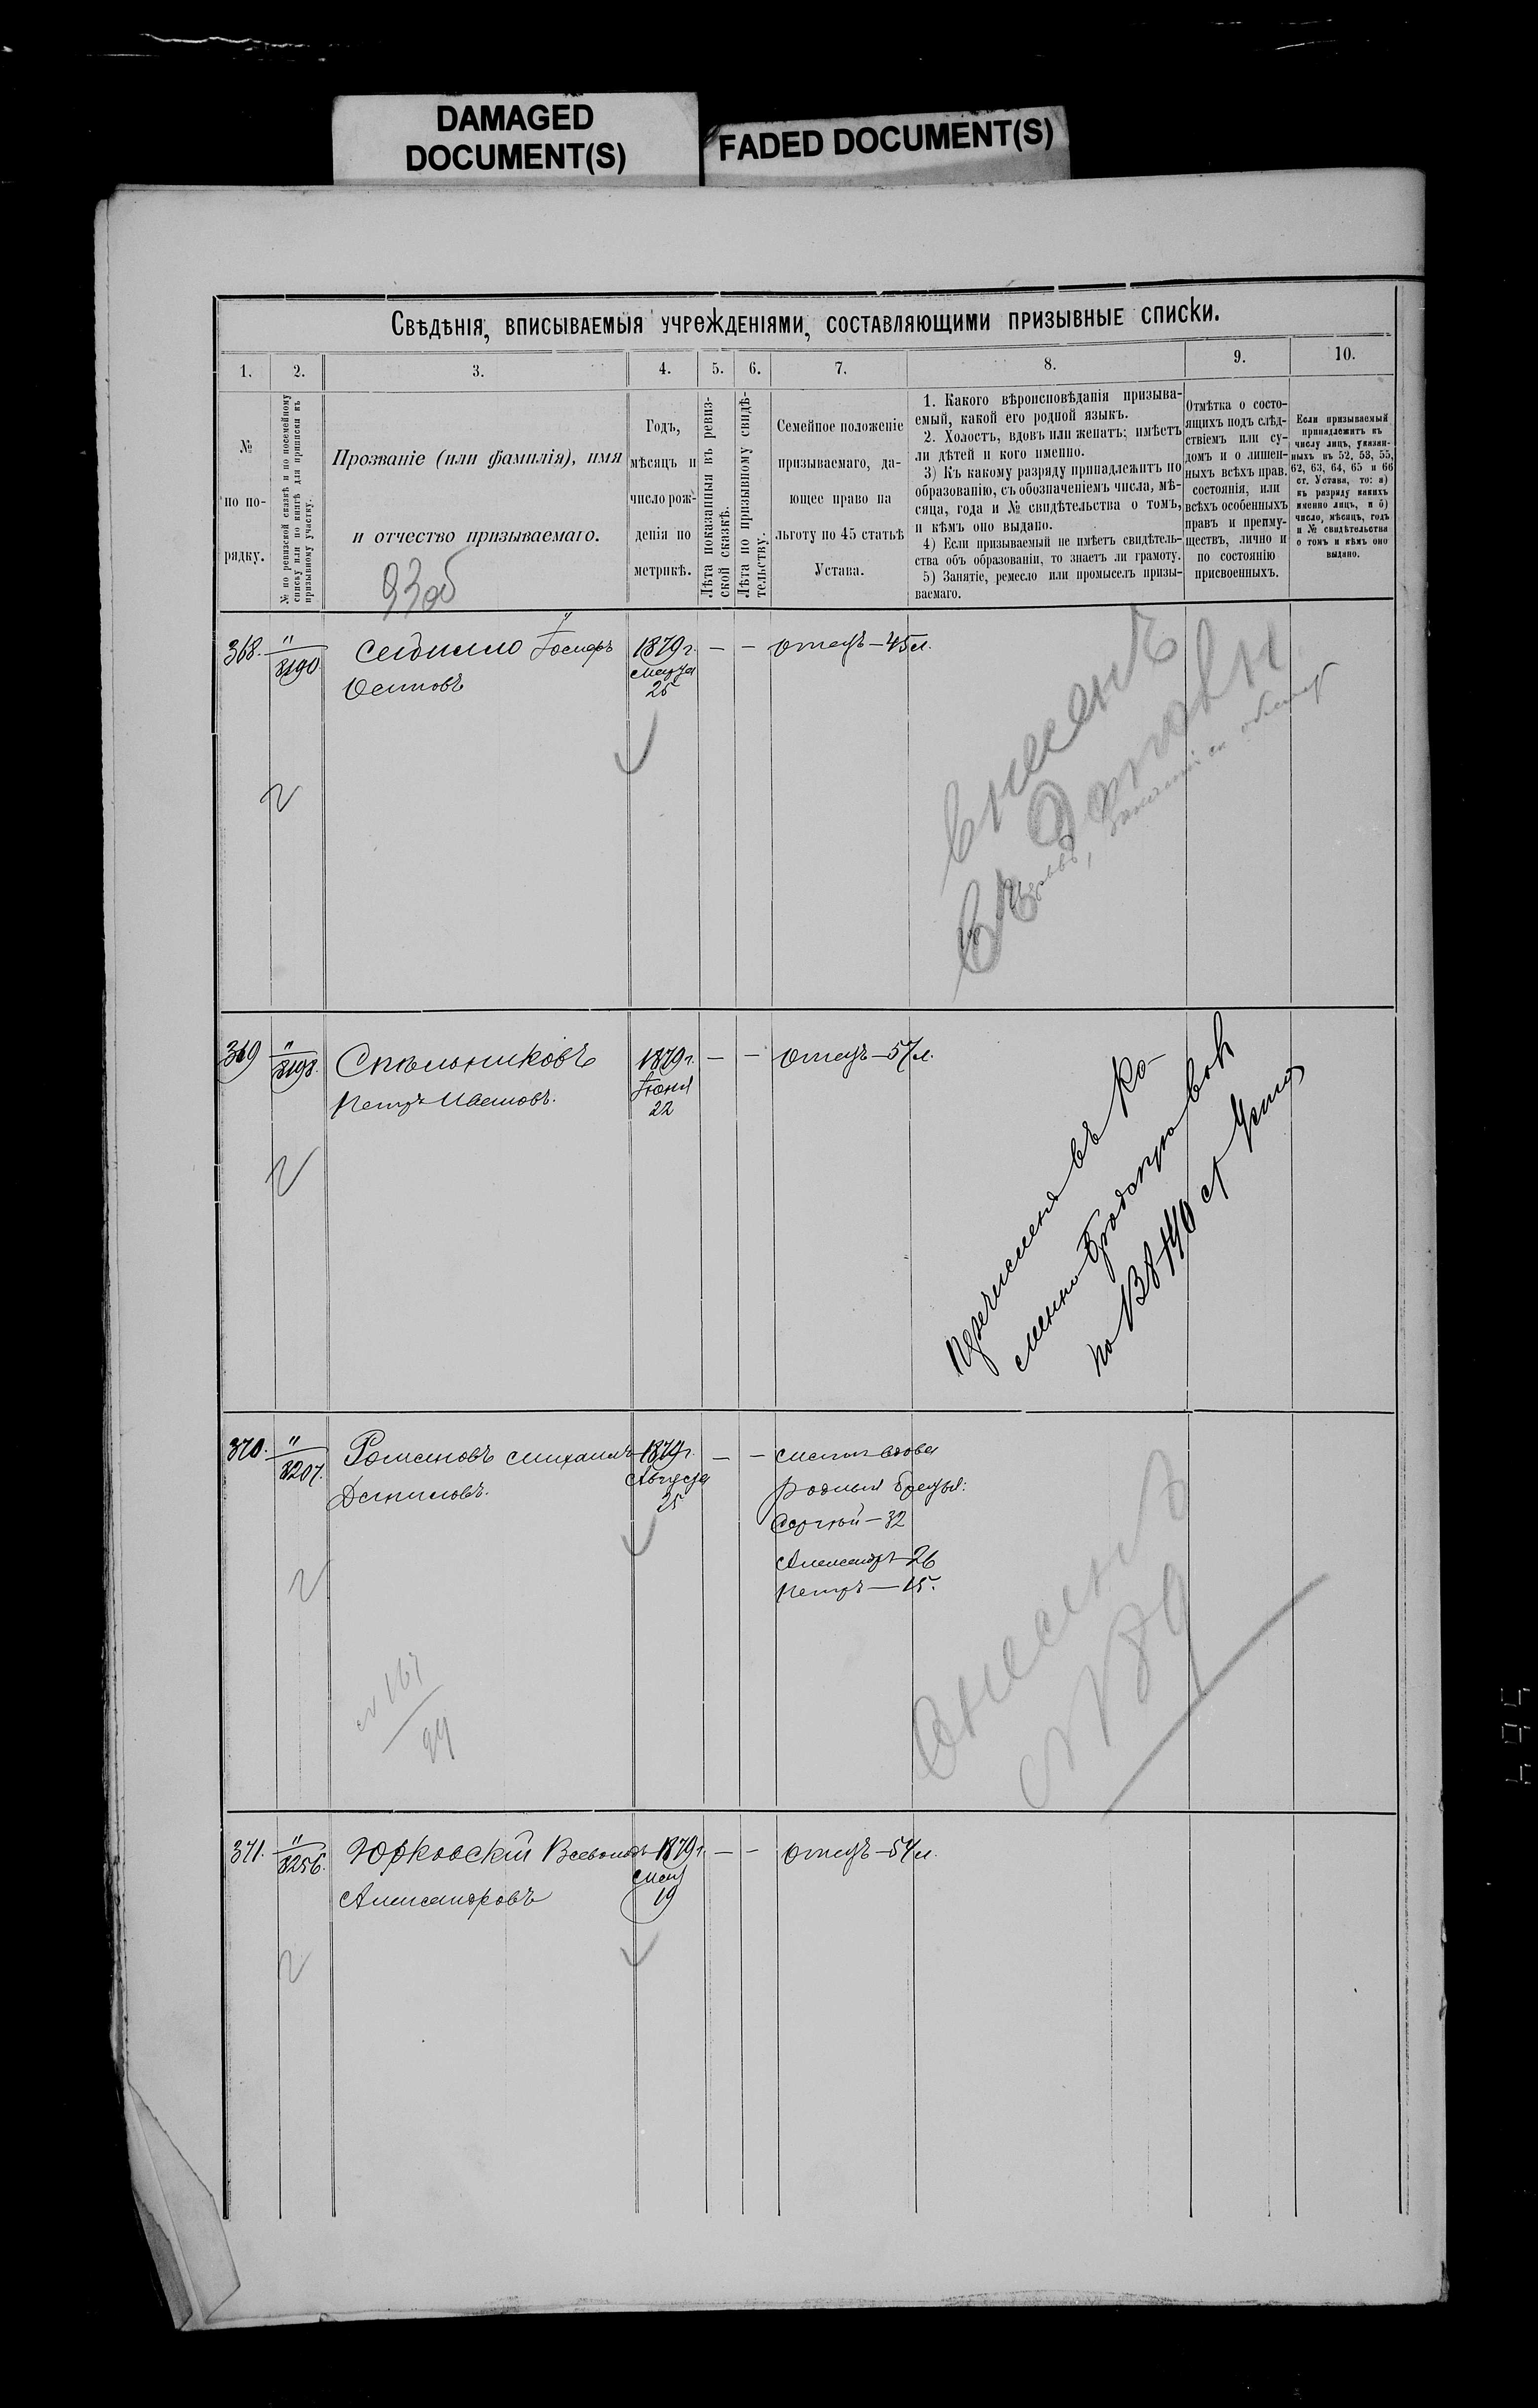 DAMAGED
DOCUMENT(S)
FADED DOCUMENT(S)
Свѣдѣнія, вписываемыя учрежденіями, составляющими призывные списки.
1.
2.
3.
4.
5.
6.
7.
8.
9.
10.
№
по по-
рядку.
№ по ревизской сказкѣ и по посемейному
списку или по книгѣ для приписки къ
призывному участку.
Прозваніе (или фамилія), имя
и отчество призываемаго.
93об
Годъ,
мѣсяцъ и
число рож-
денія по
метрикѣ.
Лѣта показанныя въ ревиз-
ской сказкѣ.
Лѣта по призывному свидѣ-
тельству.
Семейное положеніе
призываемаго, да-
ющее право на
льготу по 45 статьѣ
Устава.
1. Какого вѣроисповѣданія призыва-
емый, какой его родной языкъ.
2. Холостъ, вдовъ или женатъ; имѣетъ
ли дѣтей и кого именно.
3) Къ какому разряду принадлежитъ по
образованію, съ обозначеніемъ числа, мѣ-
сяца, года и № свидѣтельства о томъ,
и кѣмъ оно выдано.
4) Если призываемый не имѣетъ свидѣтель-
ства объ образованіи, то знаетъ ли грамоту.
5) Занятіе, ремесло или промыселъ призы-
ваемаго.
Отмѣтка о состо-
ящихъ подъ слѣд-
ствіемъ или су-
домъ и о лишен-
ныхъ всѣхъ прав.
состоянія, или
всѣхъ особенныхъ
правъ и преиму-
ществъ, лично и
по состоянію
присвоенныхъ.
Если призываемый
принадлежитъ къ
числу лицъ, указан-
ныхъ въ 52, 53, 55,
62, 63, 64, 65 и 66
ст. Устава, то: а)
къ разряду какихъ
именно лицъ, и б)
число, мѣсяцъ, годъ
и № свидѣтельства
о томъ и кѣмъ оно
выдано.
368. "
8190.
Іосифъ
Осиповъ
1879 г.
Марта
25
— — отецъ — 45 л.
внесенъ
въ
369 "
8198.
Стольниковъ
Петръ Ивановъ.
1879 г.
Іюня
22
— — отецъ — 57 л.
перечисленъ въ Ко-
по
370. "
8207.
Романовъ Михаилъ
Даниловъ.
1879 г.
Августа
25
— — мать вдова
родныя братья:
Сергѣй — 32
Александръ 26
Петръ — 15.
внесенъ
№ 89
№ 167
371. "
8256.
Юрковскій Всеволодъ
Александровъ
1879 г.
Мая
19
— — отецъ — 54 л.